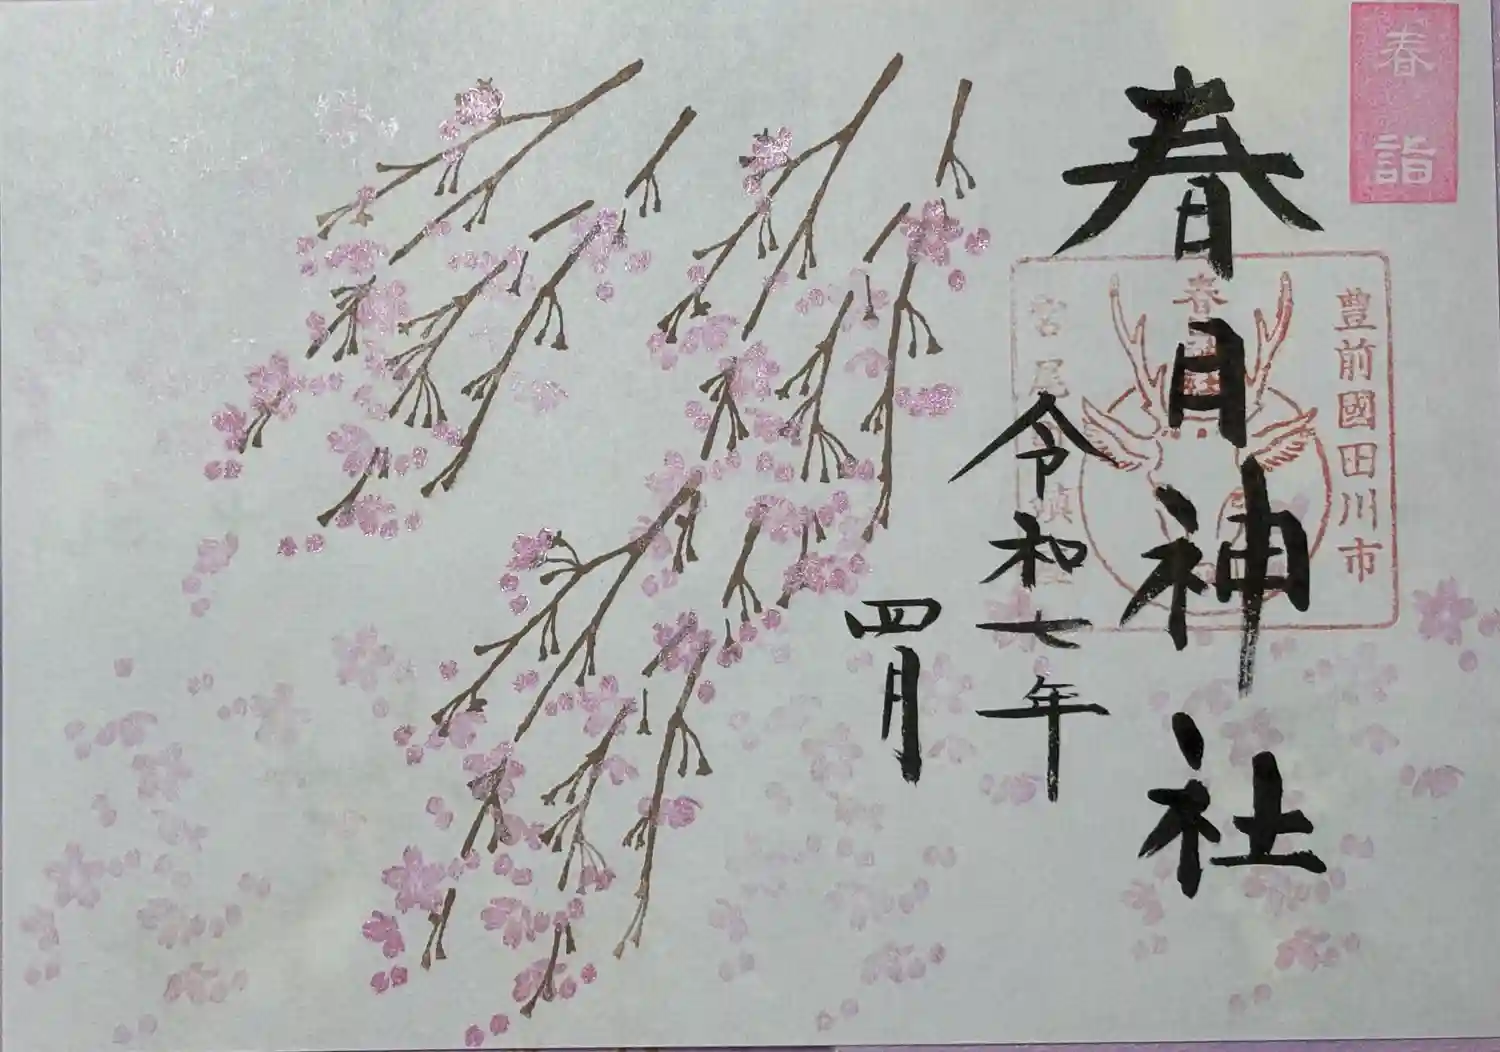 春詣
春日神社
豊前國田川市
春
宮尾町鎮座
令和七年
四月